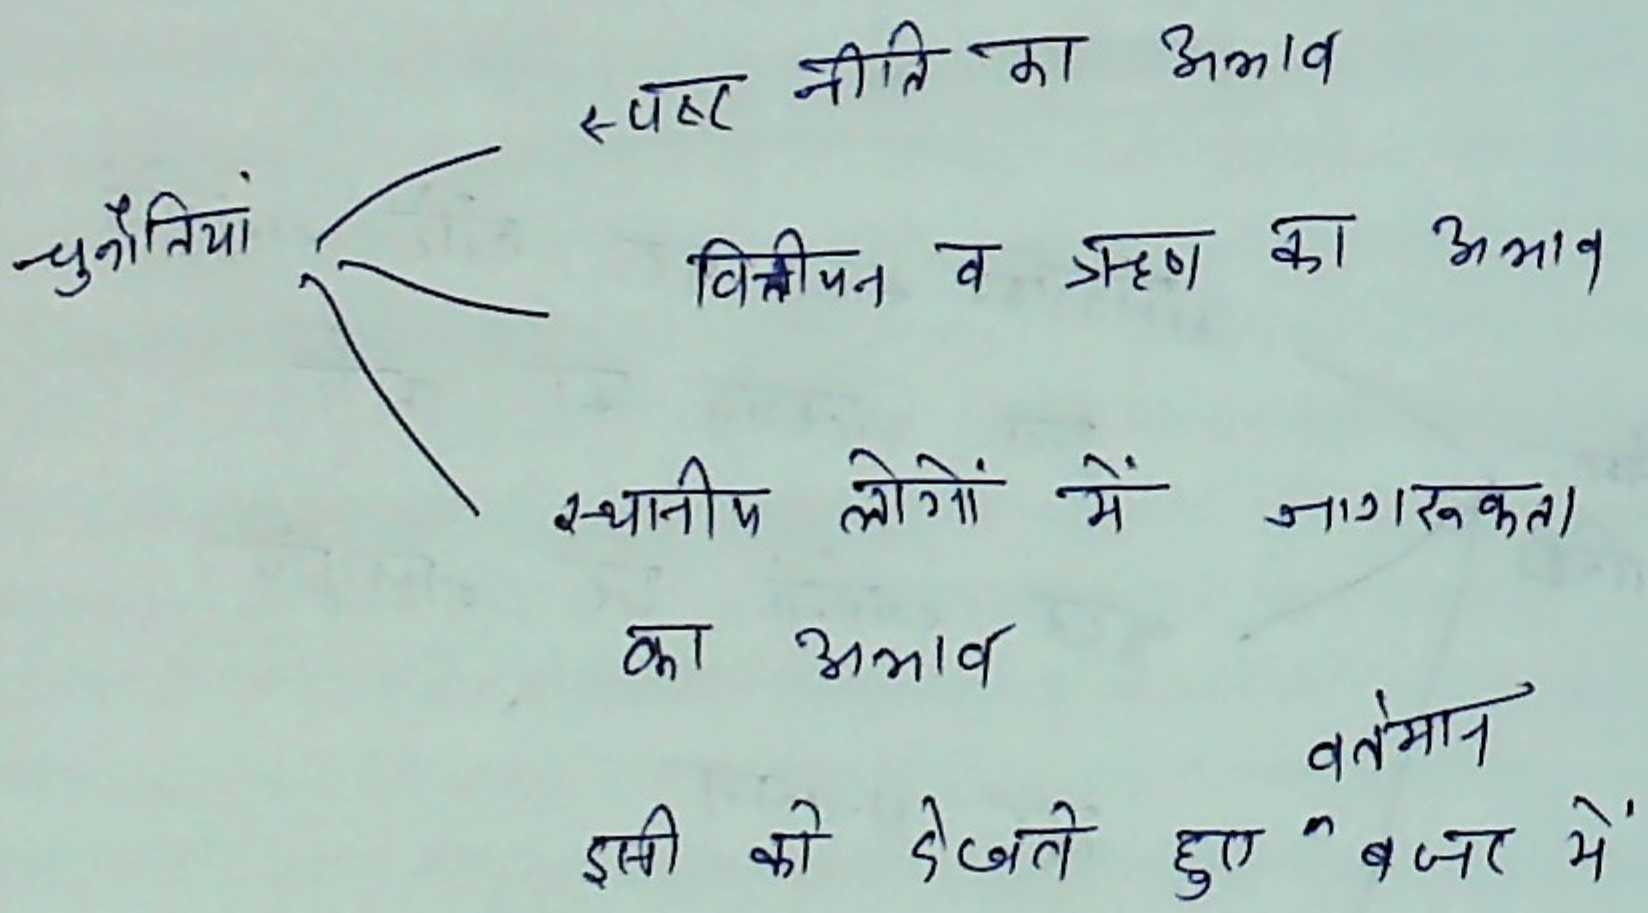 स्पष्ट नीति का अभाव
चुनौतियां
वित्तीयन व ऋण का अभाव
स्थानीय लोगों में जागरूकता
का अभाव
इसी को देखते हुए ^ वर्तमान बजट में